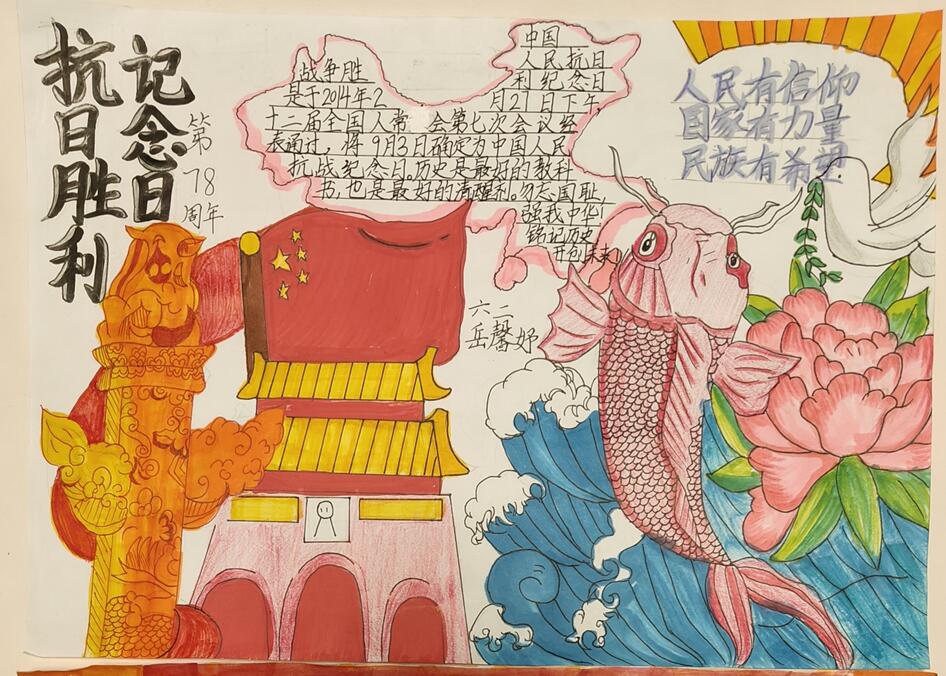 抗日胜利
记念日
第78周年
中国
人民抗日
战争胜 利纪念日
是于2014年2 月27日下午,
十二届全国人常 会第七次会议经
表通过,将9月3日确定为中国人民
抗战纪念日。历史是最好的教科
书,也是最好的清醒剂。勿忘国耻,
强我中华!
铭记历史
开创未来!
六二
岳馨妤
人民有信仰
国家有力量
民族有希望